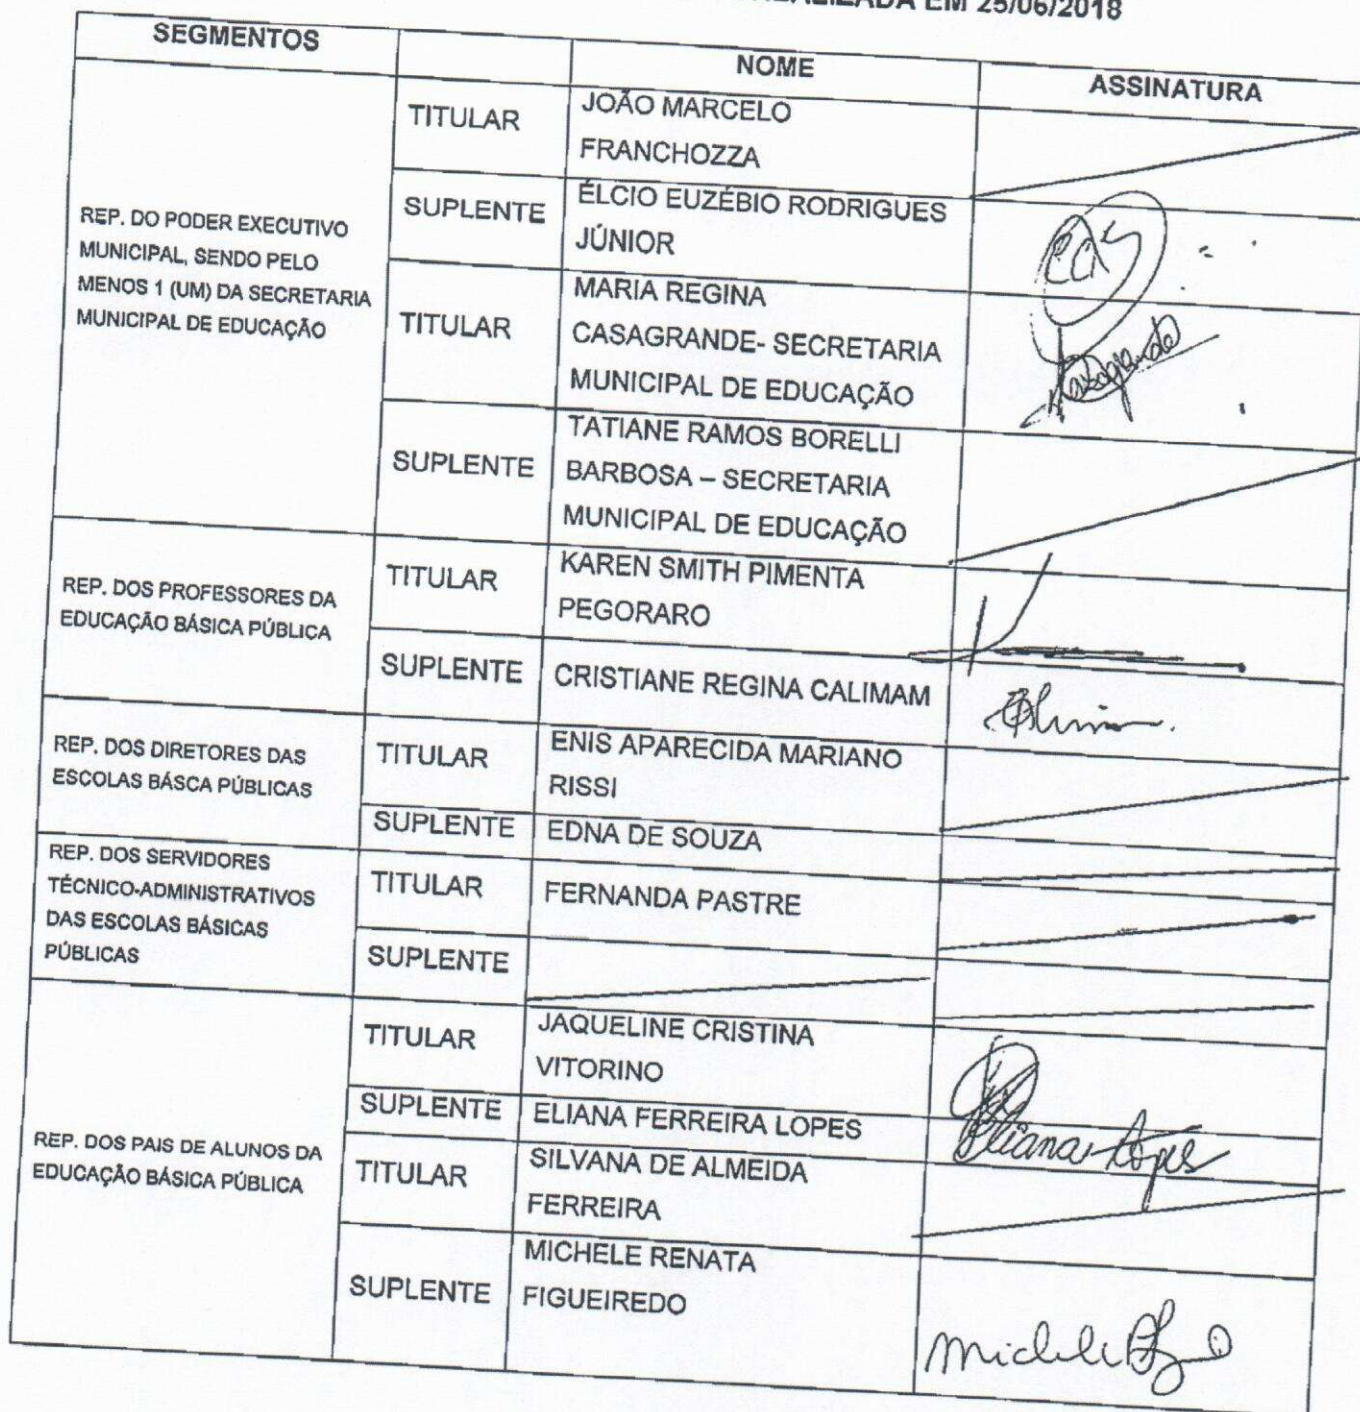 REALIZADA EM 25/06/2018
SEGMENTOS
NOME
ASSINATURA
REP. DO PODER EXECUTIVO
MUNICIPAL, SENDO PELO
MENOS 1 (UM) DA SECRETARIA
MUNICIPAL DE EDUCAÇÃO
TITULAR
JOÃO MARCELO
FRANCHOZZA
SUPLENTE
ÉLCIO EUZÉBIO RODRIGUES
JÚNIOR
TITULAR
MARIA REGINA
CASAGRANDE- SECRETARIA
MUNICIPAL DE EDUCAÇÃO
Casagrande
SUPLENTE
TATIANE RAMOS BORELLI
BARBOSA – SECRETARIA
MUNICIPAL DE EDUCAÇÃO
REP. DOS PROFESSORES DA
EDUCAÇÃO BÁSICA PÚBLICA
TITULAR
KAREN SMITH PIMENTA
PEGORARO
SUPLENTE
CRISTIANE REGINA CALIMAM
REP. DOS DIRETORES DAS
ESCOLAS BÁSCA PÚBLICAS
TITULAR
ENIS APARECIDA MARIANO
RISSI
SUPLENTE
EDNA DE SOUZA
REP. DOS SERVIDORES
TÉCNICO-ADMINISTRATIVOS
DAS ESCOLAS BÁSICAS
PÚBLICAS
TITULAR
FERNANDA PASTRE
SUPLENTE
REP. DOS PAIS DE ALUNOS DA
EDUCAÇÃO BÁSICA PÚBLICA
TITULAR
JAQUELINE CRISTINA
VITORINO
SUPLENTE
ELIANA FERREIRA LOPES
Eliana Lopes
TITULAR
SILVANA DE ALMEIDA
FERREIRA
SUPLENTE
MICHELE RENATA
FIGUEIREDO
Michele